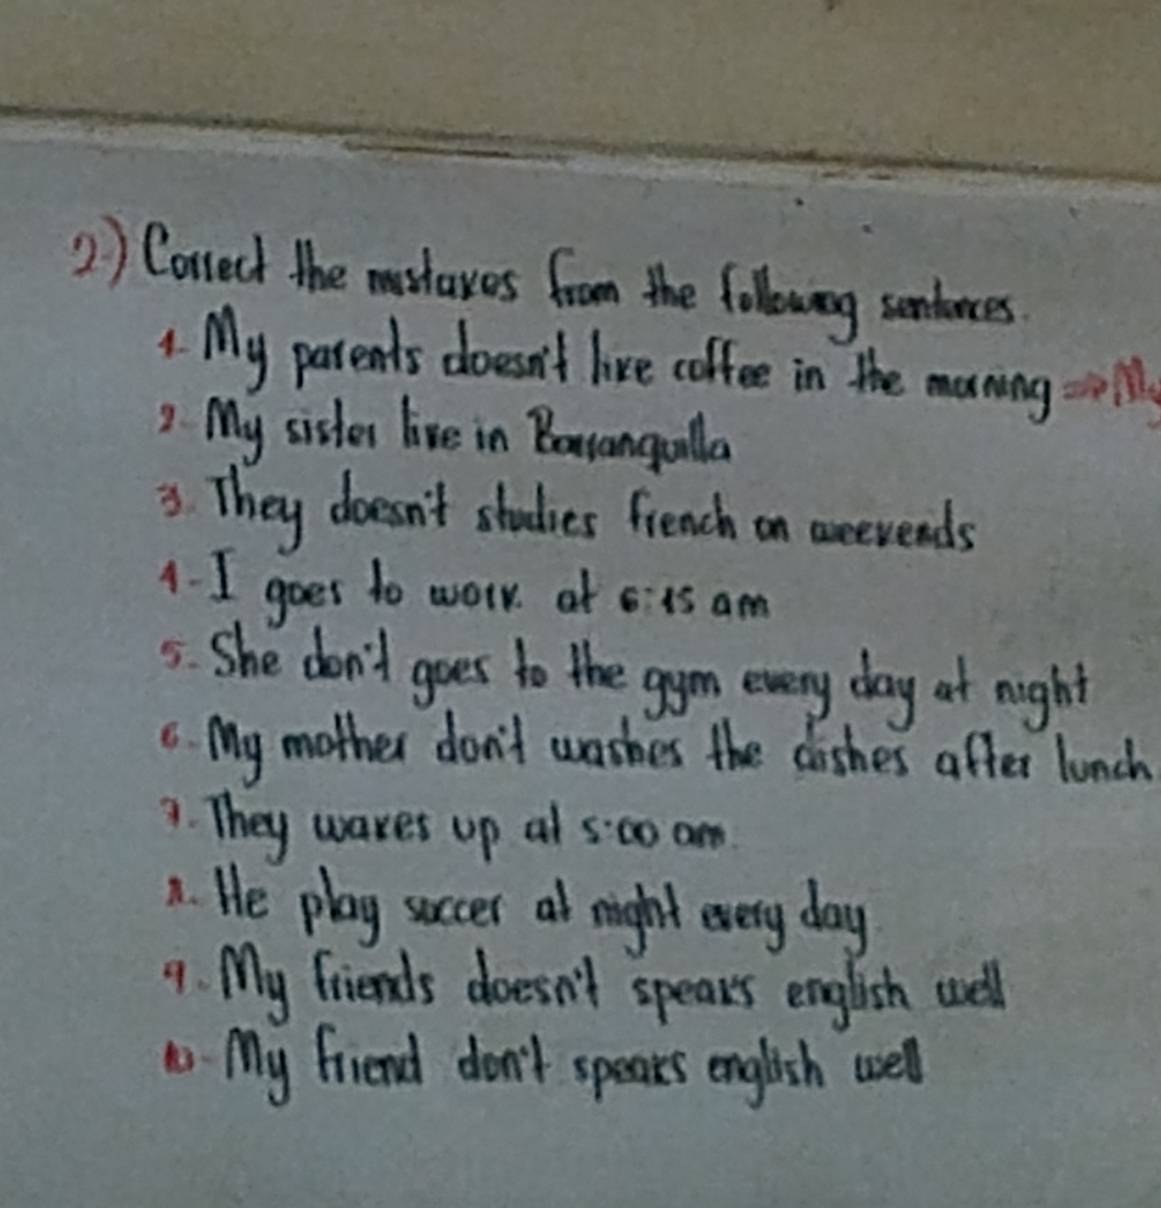 2) Correct the mistakes from the following sentences.
1. My parents doesn't like coffee in the morning ⇒ My
2. My sister live in Barranquilla
3. They doesn't studies french on weekends
4. I goes to work at 6:15 am
5. She don't goes to the gym every day at night
6. My mother don't washes the dishes after lunch
7. They wakes up at 5:00 am.
8. He play soccer at night every day
9. My friends doesn't speaks english well
10. My friend don't speaks english well